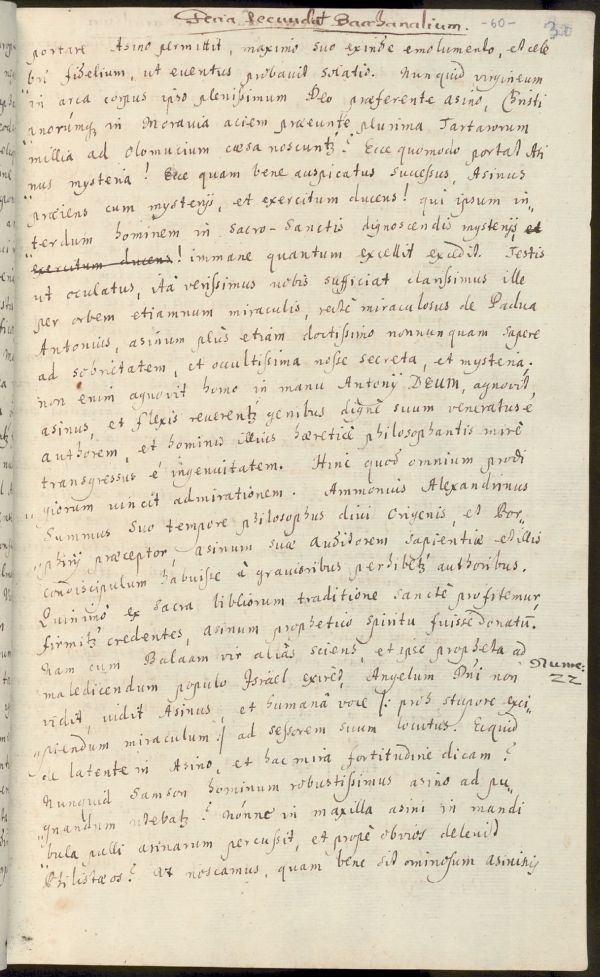 Feria Secunda Bacchanalium. -60-
portare Asino permittit, maximo suo exinde emolumento, et cele
bri fidelium, ut eventus probavit solatio. Nunquid virgineum
in arca corpus ipso plenissimum Deo præferente asino, Christi
anorúmq; in Moravia aciem præeunte plurima Tartarorum
millia ad Olomucium cæsa noscuntz? Ecce quomodo portat Asi
nus mysteria! Ecce quam bene auspicatus successus, Asinus
præiens cum mysterijs, et exercitum ducens! qui ipsum in"
terdum hominem in Sacro-Sanctis dignoscendis mysterijs et
exercitum ducens! immane quantum excellit excedit. Testis
ut oculatus, itá verissimus nobis sufficiat clarissimus ille
per orbem etiamnum miraculis, rectè miraculosus de Padua
Antonius, asinum plùs etiam doctissimo nonnunquam sapere
ad sobrietatem, et occultissima nosse secreta, et mysteria;
non enim agnovit homo in manu Antonij DEUM, agnovit
asinus, et flexis reverentz genibus dignè suum veneratus ē
authorem, et hominis illius hæreticè philosophantis mirè
transgressus ē ingenuitatem. Hinc quod omnium prodi
giorum vincit admirationem. Ammonius Alexandrinus
Summus Suo tempore philosophus divi Origenis, et Por"
"phirij præceptor, asinum suæ Auditorem Sapientiæ et illis
condiscipulum habuisse à gravioribus perhibetz authoribus.
Quinimò ex Sacra libliorum traditione Sanctè profitemur,
firmitz credentes, asinum prophetico Spiritu fuisse donatū.
Nam cum Balaam vir aliàs sciens, et ipse propheta ad
Nume: 22
maledicendum populo Israel exiret, Angelum Dni non
vidit, vidit Asinus, et humanâ voce /: proh stupore exci"
"piendum miraculum :/ ad sessorem suum locutus. Ecquid
de latente in Asino, et hac mira fortitudine dicam?
Nunquid Samson hominum robustissimus asino ad pu"
"gnandum utebatz? nónne in maxilla asini in mandi
bula pulli asinarum percussit, et propè obvios delevit
Philistæos? At noscamus, quam bene sit ominosum asininis